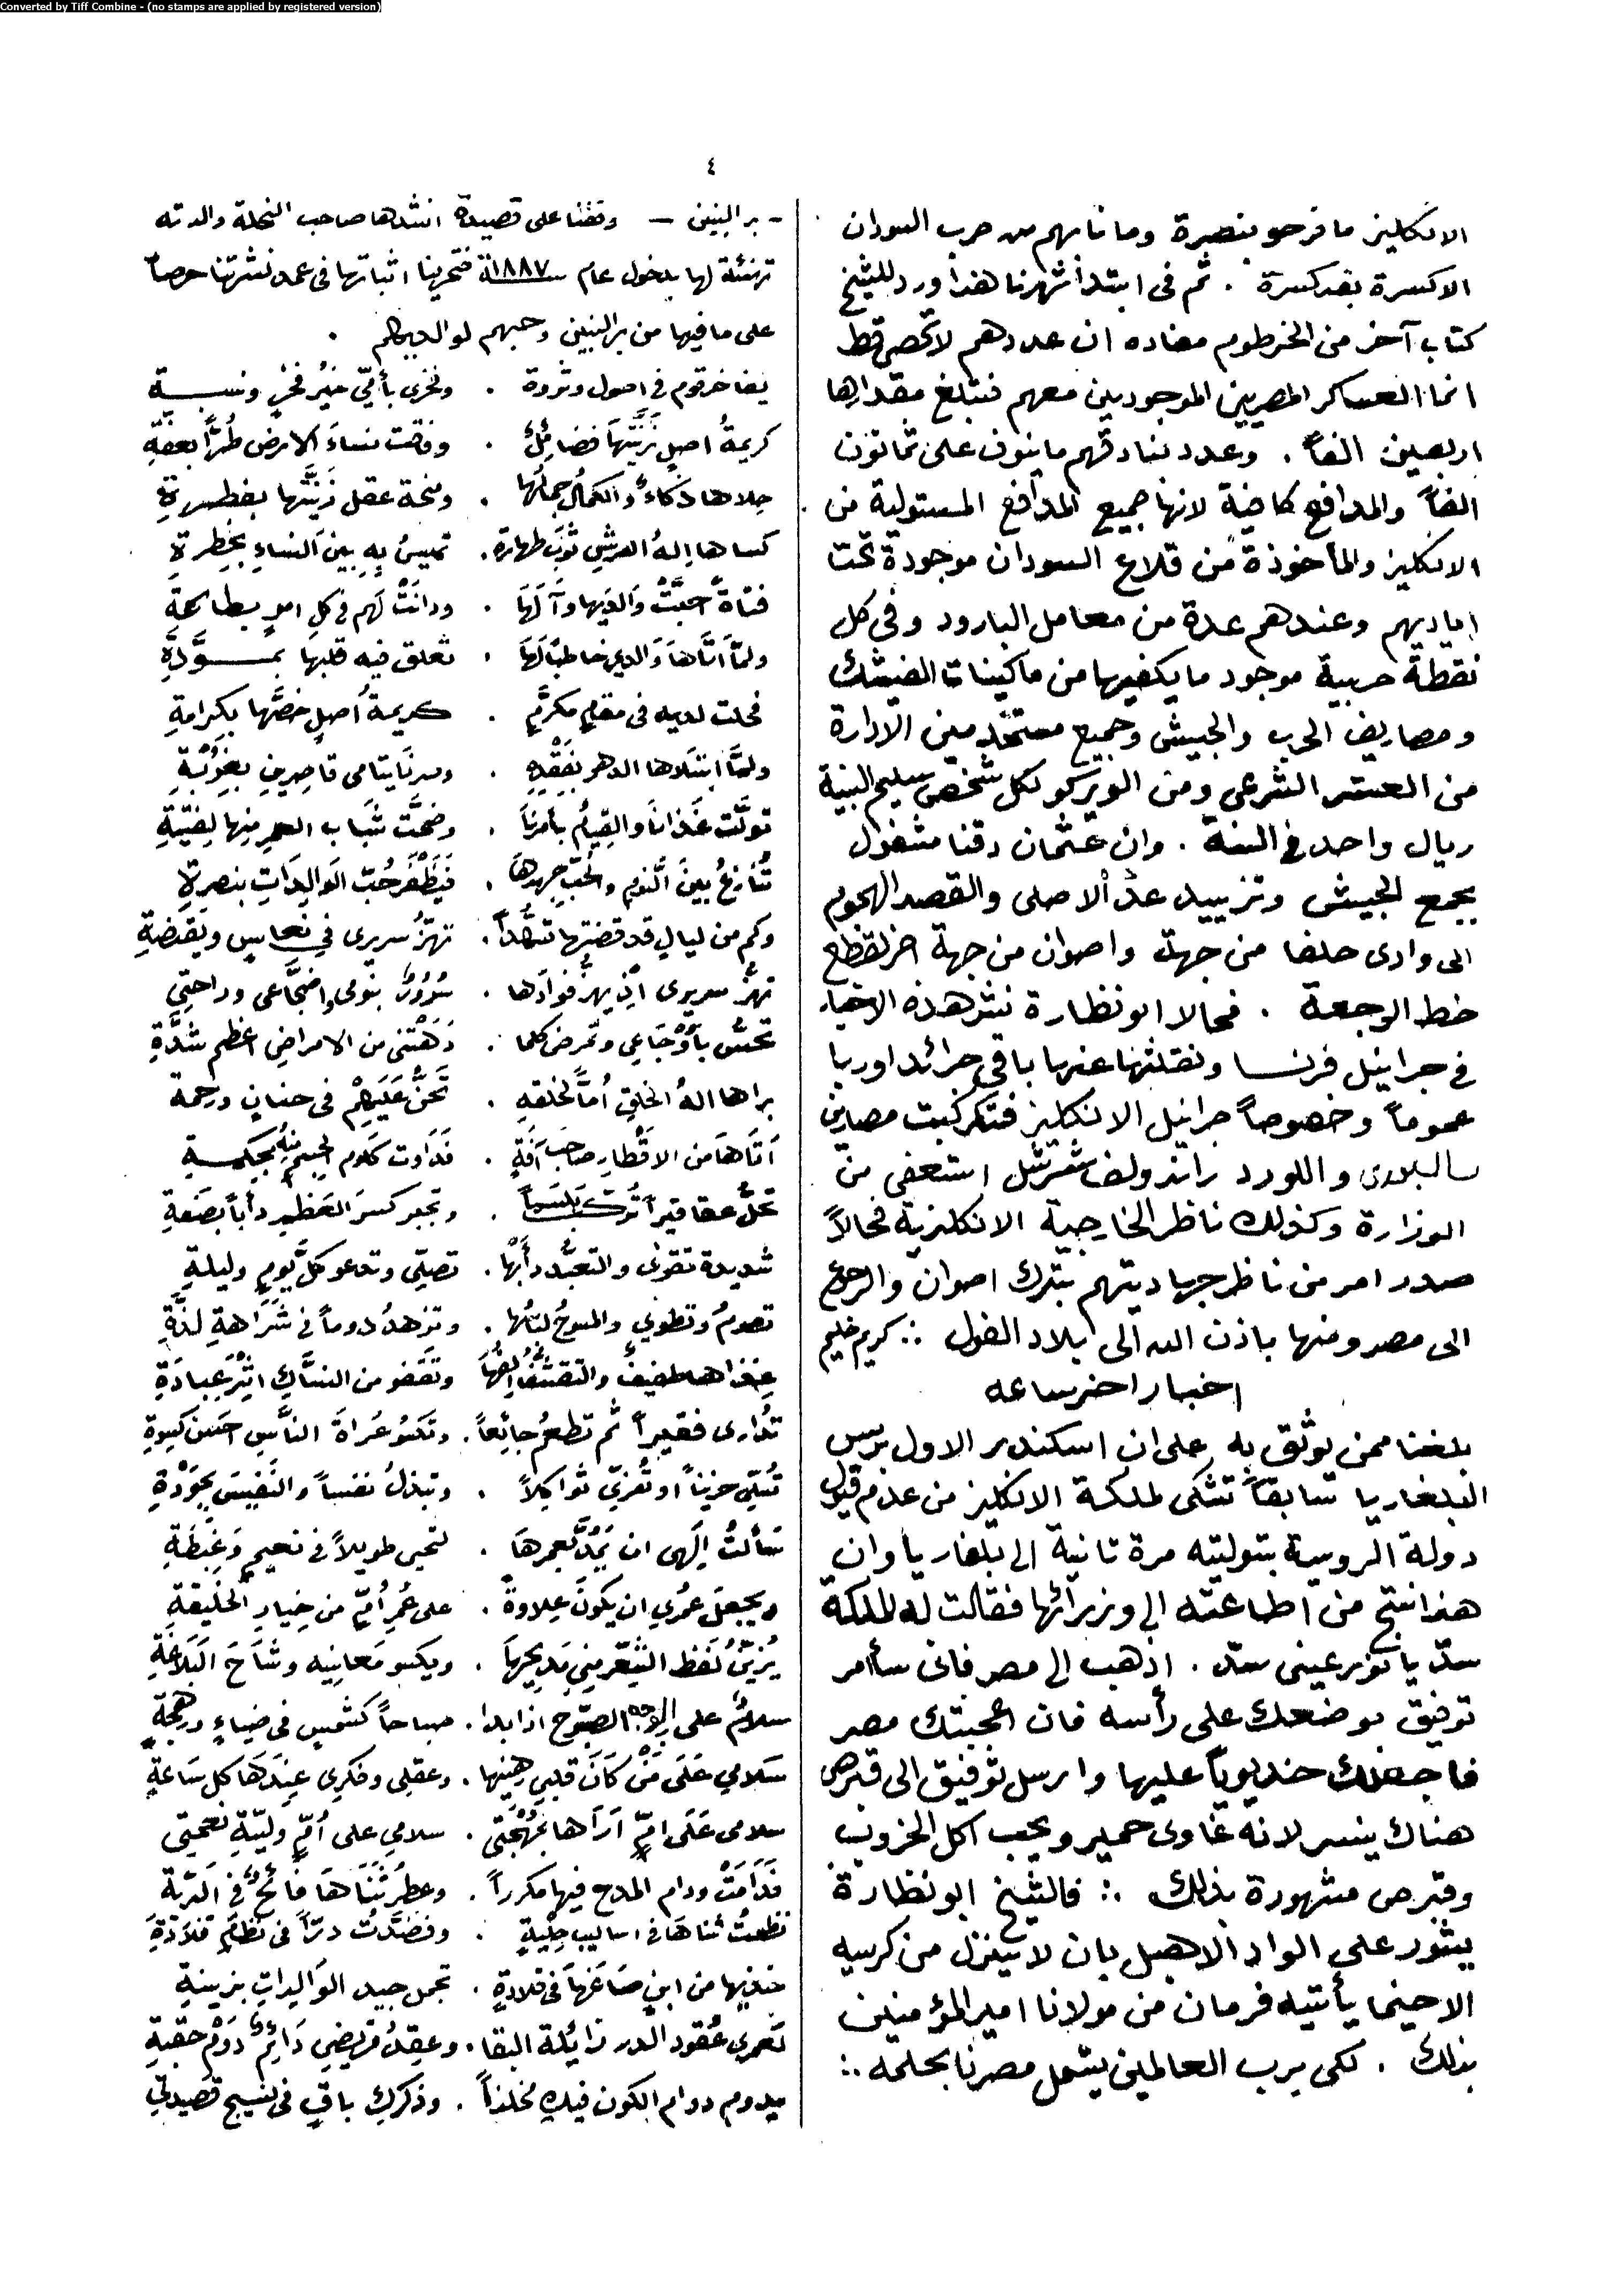 Converted by Tiff Combine - (no stamps are applied by registered version)
٤
الانكليز ما فرحو بنصرة وما نابهم من حرب السودان
الا كسرة بعد كسرة . ثم فى ابتدا شهرنا هذا ورد للشيخ
كتاب آخر من الخرطوم مفاده ان عددهم لا يحصى قط
انما العساكر المصريين الموجودين معهم فتبلغ مقدارها
اربعين الفاً . وعدد بنادقهم ما ينوف على ثمانون
الفاً والمدافع كافية لانها جميع المدافع المستولية من
الانكليز والمأخوذة من قلاع السودان موجودة تحت
اياديهم وعندهم عدة من معامل البارود وفى كل
نقطة حربية موجود ما يكفيها من ماكينات الفشك
ومصاريف الحرب والجيش وجميع مستخدمين الادارة
من العشر الشرعى ومن الويركو لكل شخص سليم البنية
ريال واحد فى السنة . وان عثمان دقنا مشغول
بجمع الجيش وتزييد عن الاصلى والقصد الهجوم
الى وادى حلفا من جهة واصوان من جهة اخر لقطع
خط الرجعة . فحالا ابو نظارة نشر هذه الاخبار
فى جرانيل فرنسا ونقلتها عنها باقى جرائد اوربا
عموماً وخصوصاً جرانيل الانكليز فتكركبت مصارين
سالسبورى واللورد راندولف شرشل استعفى من
الوزارة وكذلك ناظر الخارجية الانكلزية فحالاً
صدر امر من ناظر جهاديتهم بترك اصوان والرجوع
الى مصر ومنها باذن الله الى بلاد الفول ∴ كريم حليم
اخبار اخر ساعه
بلغنا ممن يوثق به على ان اسكندر الاول برنس
البلغاريا سابقاً تشكى لملكة الانكليز من عدم قبول
دولة الروسية بتوليته مرة تانية الى بلغاريا وان
هذا نتج من اطاعته الى وزرائها فقالت له الملكة
سدّ يا نور عينى سدّ . اذهب الى مصر فانى سأامر
توفيق بوضعك على رأسه فان اعجبتك مصر
فاجعلك خديوياً عليها وارسل توفيق الى قبرص
هناك ينسر لانه غاوى حمير ويحب اكل الخروب
وقبرص مشهورة بذلك ∴ فالشيخ ابو نظارة
يشور على الواد الاهبل بان لا ينزل من كرسيه
الا حينما يأتيه فرمان من مولانا امير المؤمنين
بذلك . لكى يرب العالمين يشمل مصرنا بحلمه ∴
- بر البنين — وقفنا على قصيدة انشدها صاحب النحلة والدته
تهنئة لها بدخول عام ١٨٨٧سنة فتحرينا اثباتها فى عمد نشرتنا حرصاً
على ما فيها من بر البنين وحبهم لوالديهم .
يفاخر قوم فى اصول وثروة . وفخرى بأمّي خيرُ فخرٍ ونسبة
كريمةُ اصلٍ زيّنتها فضائلٌ . وفقت نساءَ الارض طُرّاً بعفّةِ
حلاها ذكاءٌ والكمال جمالُها . ومنحة عقل زيّنتها بفطرةِ
كساها إلهُ العرشِ ثوبَ طهارة . تميسُ بِهِ بين النساءِ بخطرةِ
فتاةٌ أحبَّتْ والديها وآلَها . ودانتْ لهم فى كلِ امرٍ بطاعةِ
ولمّا اتّاها والدي خاطباً لها . تعلق فيه قلبها بمودَّةِ
فحلت لديه فى مقامٍ مكرّمٍ . كريمةُ أصلٍ خصَّها بكرامةِ
ولمّا ابتلاها الدهر بفقدِهِ . وصرنا يتامى قاصرين بغربةِ
تولّت غذانا والقيامُ بأمرنا . وضحّت شباب العمر منها لفتيةِ
تُنازعُ بين النوم والحب جهدها . فيظفر حُبّ الوالداتِ بنصرةِ
وكم من ليالٍ قد قضتها تسهُّداً . تهزُّ سريرى فى نعاسٍ ويقضةِ
تهزُّ سريرى اذ يهزُّ فوادَها . سُرورٌ بنومى واضجاعى وراحتِي
تحسُّ بأوجاعي وتمرض كلما . دَهَتْنى من الامراضِ اعظم شدَّةِ
براها الهُ الخلقِ أُمّاً لخلقهِ . تحنُّ عليهم فى حنانٍ ورحمة
اتاها من الاقطارِ صاحب آفةٍ . فداوت كلوم الجسم منه بحكمةِ
تحلُّ عقاقيراً تُركّب بلسماً . وتجبر كسرَ العظيم دأباً بصَنعةِ
شديدة تقوى والتعبّد دأبها . تصلّي وتدعو كلَّ يومٍ وليلةٍ
تصومُ وتطوي والمسوحُ لباسُها . وتزهدُ دوماً فى شَراهةِ لذَّةِ
غذاها طفيفٌ والتقشّف إلفُها . وتقفو من النسّاكِ اثر عبادةِ
تُدارى فقيراً ثم تطعمُ جائعاً . وتكسُو عُراةَ النّاسِ احسن كسوةِ
تُسَلّي حزيناً او تُعزيّ ثواكِلاً . وتبذلُ نفساً والنفيسَ بجودةِ
سَألتُ إلهى ان يَمُدَّ بعمرها . لتحيى طويلاً فى نعيمٍ وغبطةِ
ويجعلَ عمري ان يكونَ علاوةً . على عُمرِ أمّ من خيارِ الخليقةِ
يُزيّنُ لفظ الشعر مني مديحُها . ويكسو معانيه وشاحَ البلاغةِ
سلامٌ على الوجه الصبوح اذا بدا . صباحاً كشمس فى ضياءٍ وبهجةٍ
سلامي على من كان قلبي رهينها . وعقلى وفكرى عندها كل ساعةٍ
سلامى على امٍّ اراها بمهجتى . سلامي على أمٍّ وليّةِ نعمتى
فدامتْ ودام المدح فيها مكرراً . وعطرُ ثناها فائحٌ فى البريّة
نظمتُ ثناها فى اساليب حليةٍ . ونضّدتُ درّاً فى نظام قلادةِ
خذيها من ابنٍ صاغها فى قلادةٍ . تجمل جيد الوالداتِ بزينةِ
لعمري عُقود الدر زائلة البقا . وعقدُ قريضي دائمٌ دومَ حقبةِ
يدوم دوام الكون فيكِ مخلداً . وذكركِ باقٍ فى نسيج قصيدتي